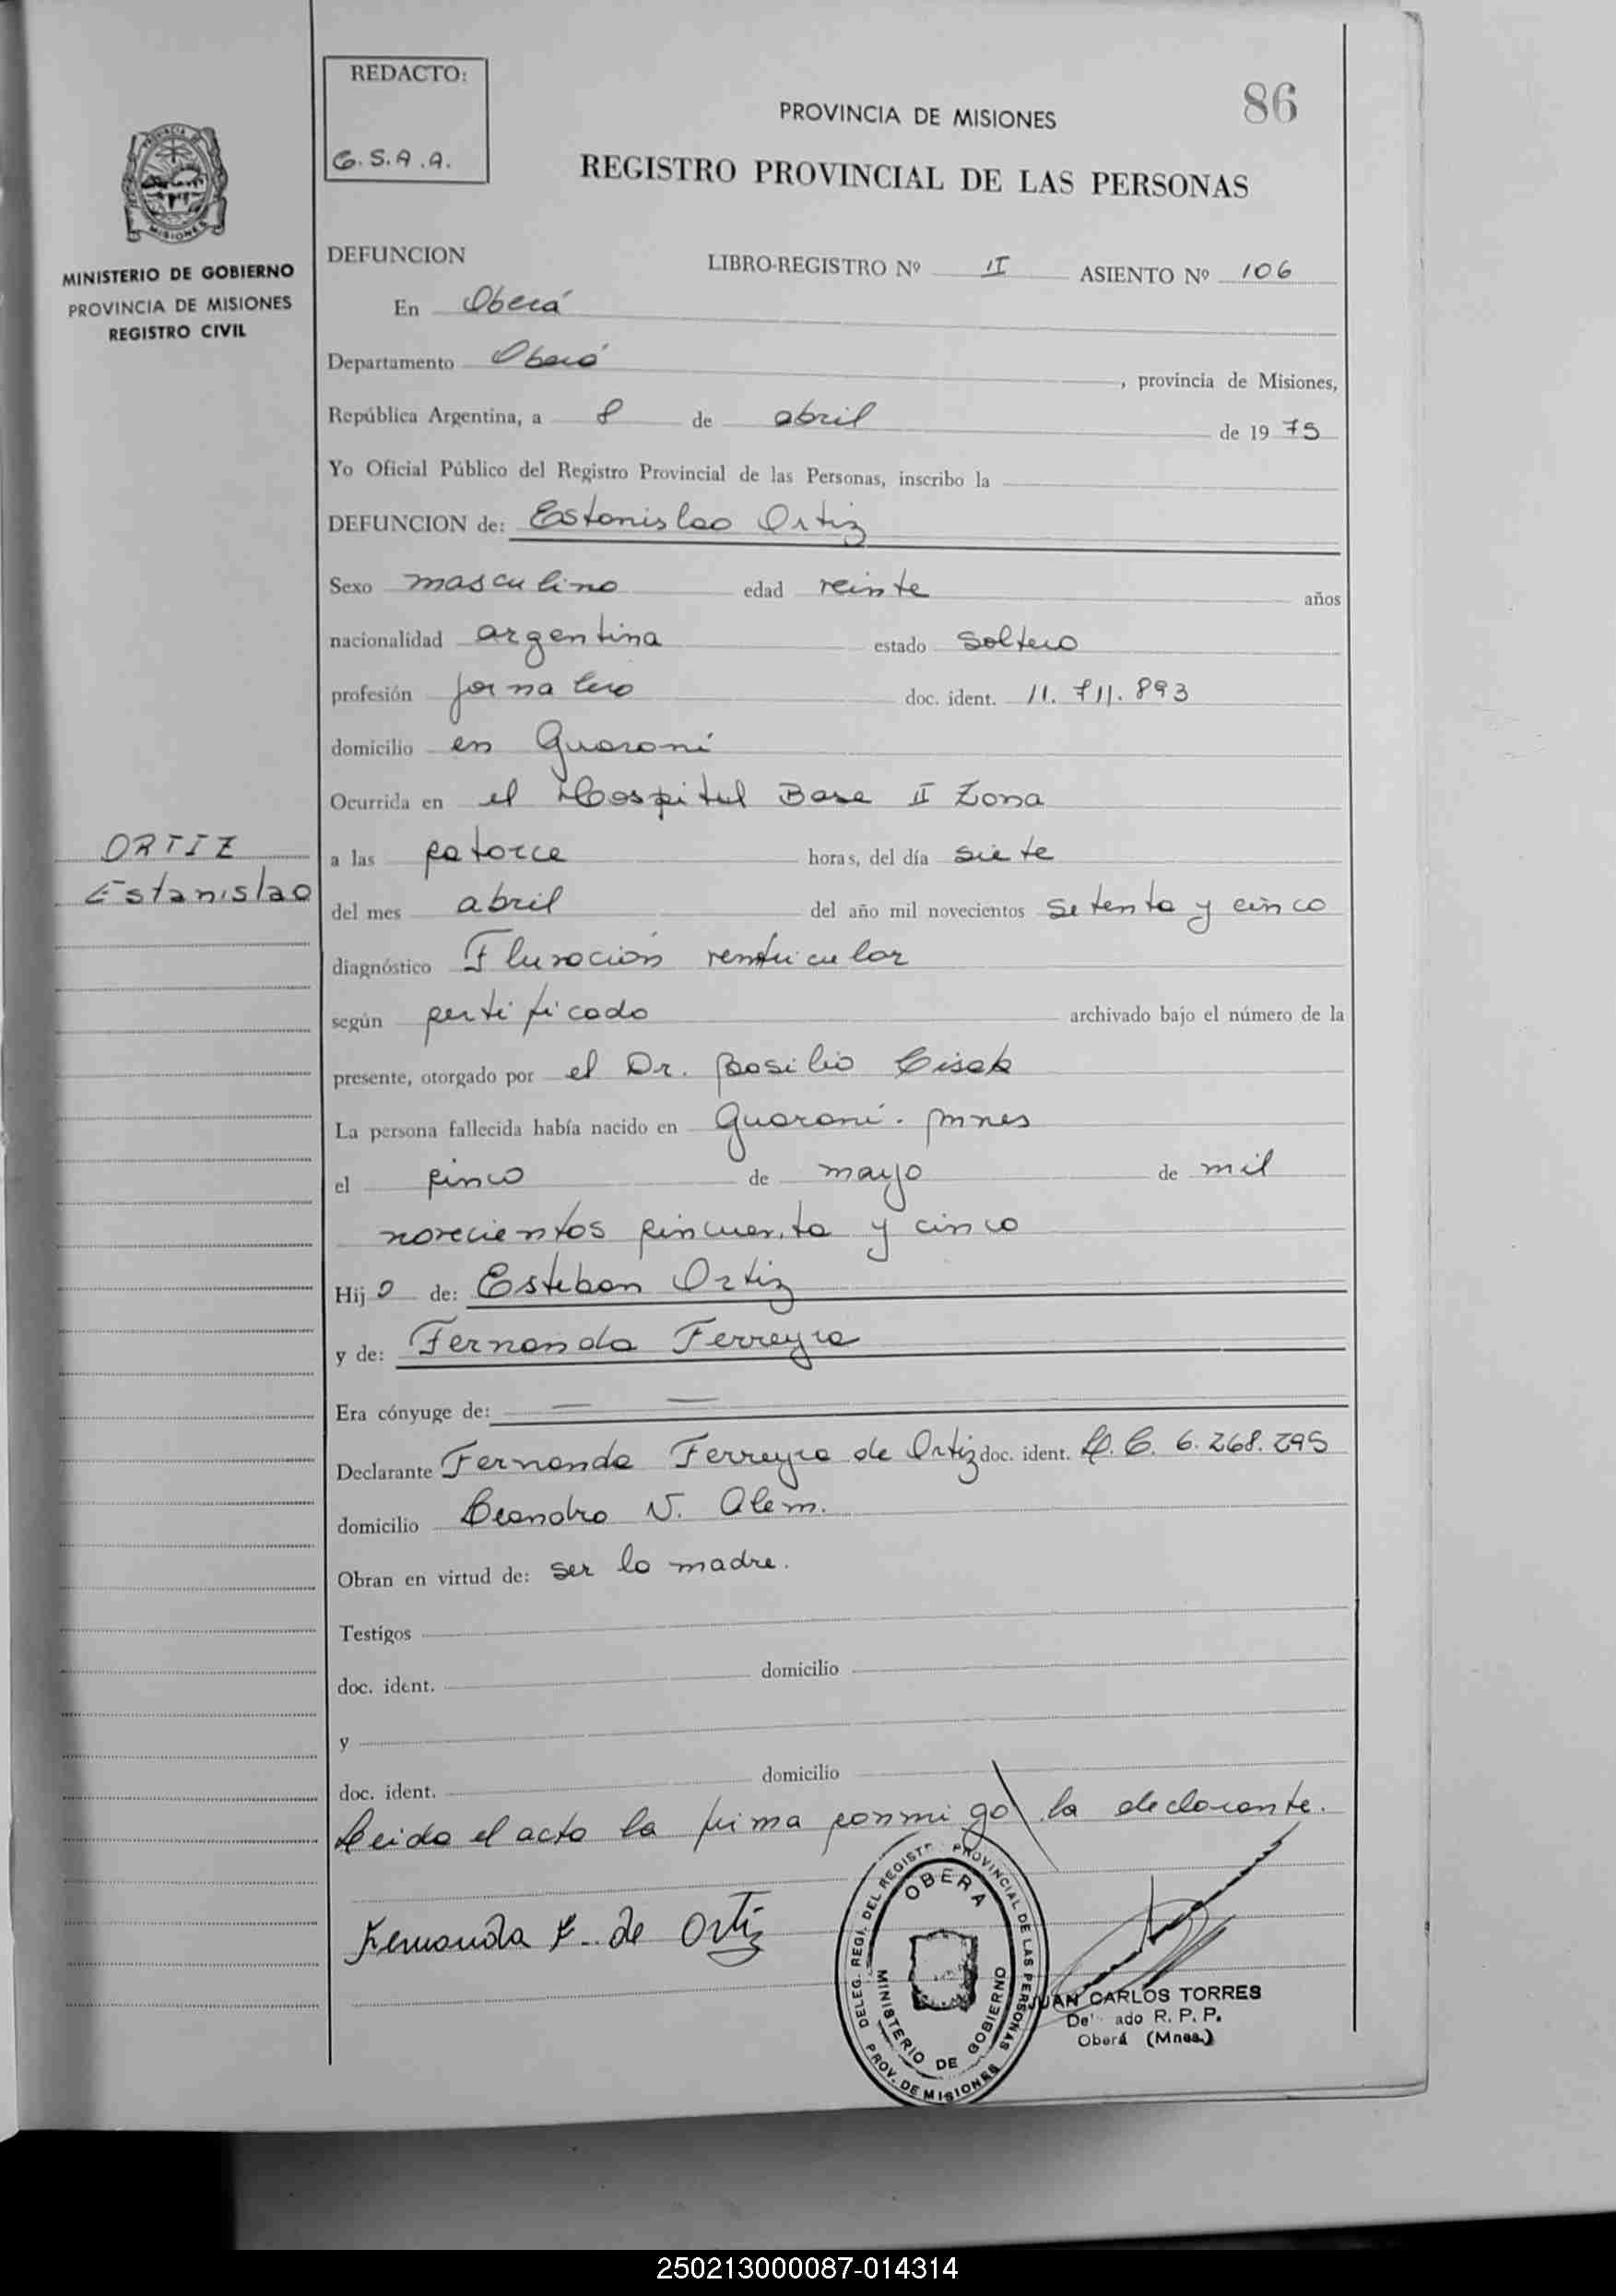 REDACTO:
G.S.A.A.
86
PROVINCIA DE MISIONES
REGISTRO PROVINCIAL DE LAS PERSONAS
MINISTERIO DE GOBIERNO
PROVINCIA DE MISIONES
REGISTRO CIVIL
DEFUNCION LIBRO-REGISTRO Nº II ASIENTO Nº 106
En Oberá
Departamento Oberá, provincia de Misiones,
República Argentina, a 8 de abril de 1975
Yo Oficial Público del Registro Provincial de las Personas, inscribo la
DEFUNCION de: Estanislao Ortiz
Sexo masculino edad veinte años
nacionalidad argentina estado soltero
profesión jornalero doc. ident. 11.711.893
domicilio en Guaraní
Ocurrida en el Hospital Base II Zona
ORTIZ
Estanislao
a las catorce horas, del día siete
del mes abril del año mil novecientos setenta y cinco
diagnóstico ventricular
según certificado archivado bajo el número de la
presente, otorgado por el Dr. Basilio
La persona fallecida había nacido en Guaraní. Mnes
el cinco de mayo de mil
novecientos cincuenta y cinco
Hijo de: Esteban Ortiz
y de: Fernanda Ferreyra
Era cónyuge de: — —
Declarante Fernanda Ferreyra de Ortiz doc. ident. L.C. 6.268.295
domicilio Leandro N. Alem.
Obran en virtud de: ser la madre.
Testigos
doc. ident. domicilio
y
doc. ident. domicilio
Leida el acta la firma conmigo la declarante.
Fernanda F. de Ortiz
DELEG. REGI. DEL REGISTR PROVINCIAL DE LAS PERSONAS
OBERA
MINISTERIO DE GOBIERNO
PROV. DE MISIONES
JUAN CARLOS TORRES
De ado R. P. P.
Oberá (Mnes.)
250213000087-014314